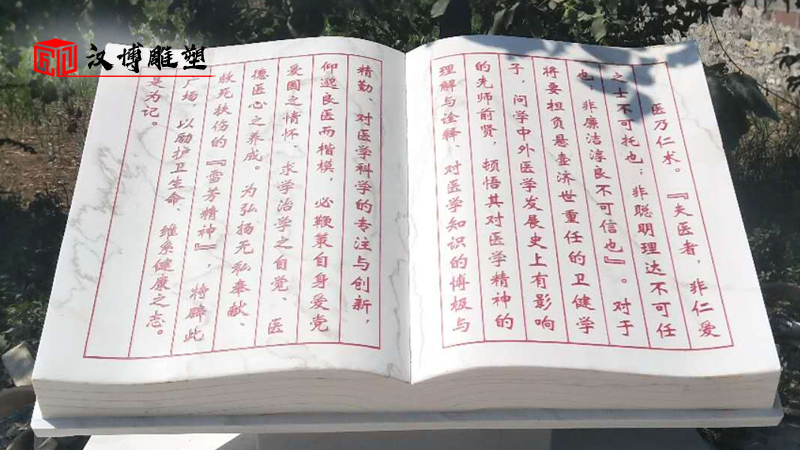 汉博雕塑
医乃仁术。『夫医者，非仁爱
之士不可托也；非聪明理达不可任
也；非廉洁淳良不可信也』。对于
将要担负悬壶济世重任的卫健学
子，问学中外医学发展史上有影响
的先师前贤，顿悟其对医学精神的
理解与诠释、对医学知识的博极与
精勤、对医学科学的专注与创新，
仰邈良医而楷模，必鞭策自身爱党
爱国之情怀、求学治学之自觉、医
德医心之养成。为弘扬无私奉献、
救死扶伤的『雷芳精神』，特辟此
广场，以励护卫生命、维系健康之志。
是为记。